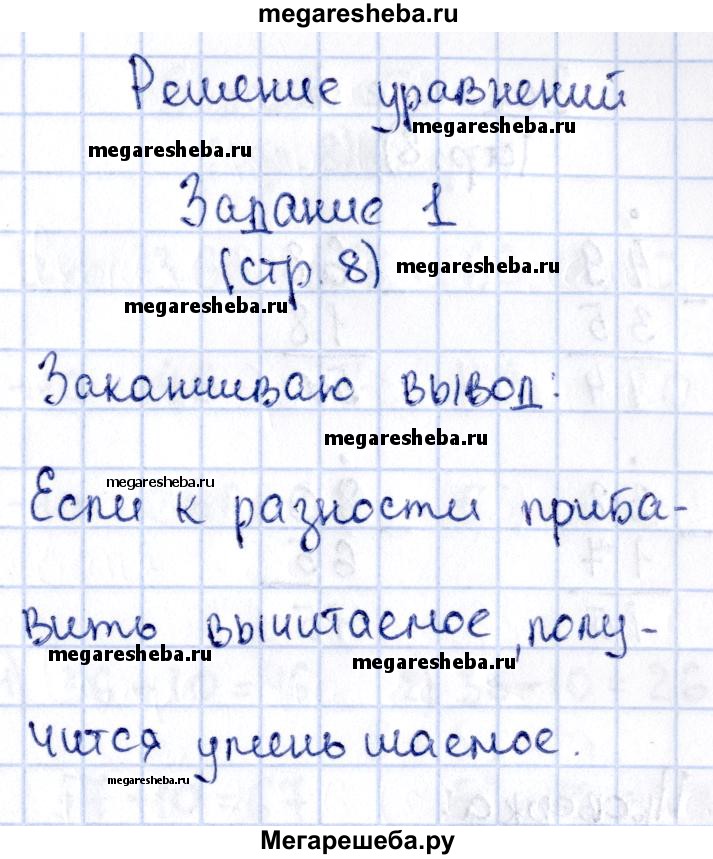 megaresheba.ru
Решение уравнений
megaresheba.ru
megaresheba.ru
Задание 1
(стр. 8)
megaresheba.ru
megaresheba.ru
Заканчиваю вывод:
megaresheba.ru
megaresheba.ru
Если к разности приба-
вить вычитаемое, полу-
megaresheba.ru
megaresheba.ru
чится уменьшаемое.
megaresheba.ru
Мегарешеба.ру